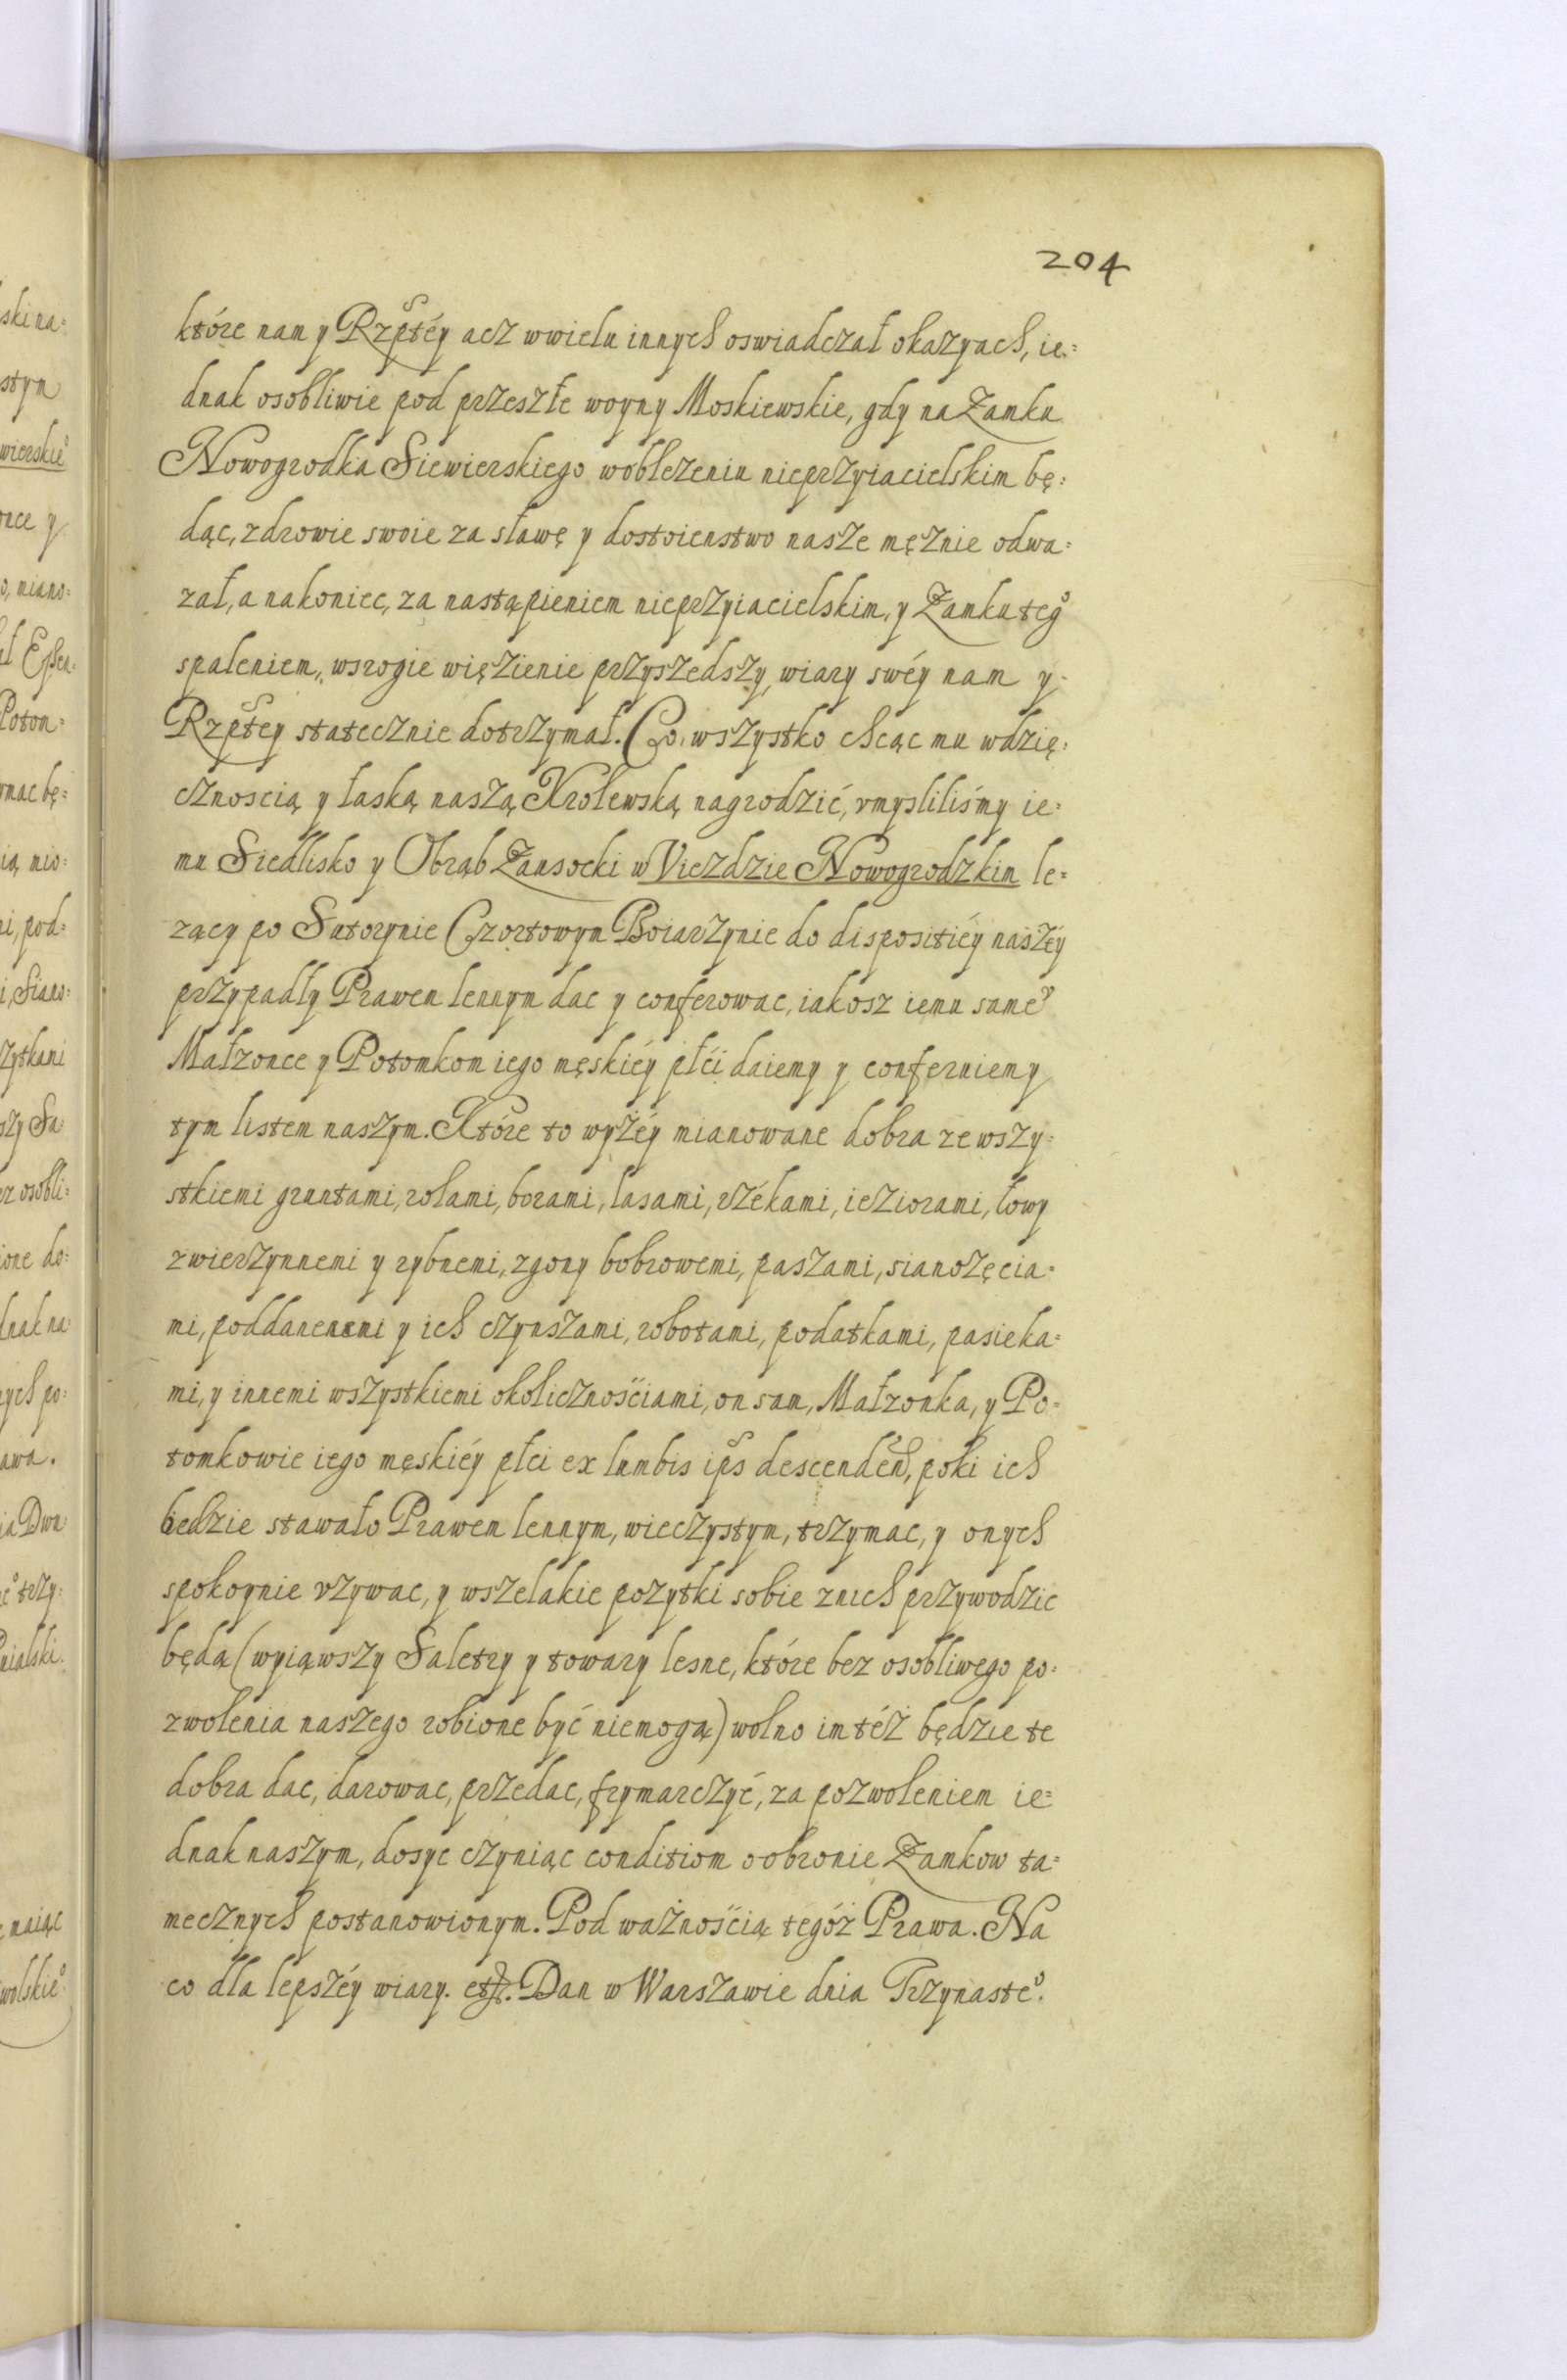 204
które nam y Rzptéy acz wwielu innych oswiadczał okazyach, ie=
dnak osobliwie pod przeszłe woyny Moskiewskie, gdy na Zamku
Nowogrodka Siewierskiego woblezeniu nieprzyiacielskim bę=
dąc, zdrowie swoie za sławę y dostoienstwo nasze mężnie odwa=
zał, a nakoniec, za nastąpieniem nieprzyiacielskim, y Zamku teg°
spaleniem, wsrogie więzienie przyszedszy, wiary swéy nam y
Rzptey statecznie dotrzymał. Co, wszystko chcąc mu wdzię=
cznoscią y łaską naszą Krolewską nagrodzić, vmysliliśmy ie=
mu Siedlisko y Obrąb Zausocki w Viezdzie Nowogrodzkim le=
zący po Sutorynie Czortowym Boiarzynie do dispositiéy naszéy
przypadły Prawem lennym dac y conferowac, iakosz iemu same°
Małzonce y Potomkom iego męskiéy płći daiemy y conferuiemy
tym listem naszym. Które to wyżéy mianowane dobra ze wszy=
stkiemi gruntami, rolami, borami, lasami, rzékami, ieziorami, łowy
zwierzynnemi y rybnemi, zgony bobrowemi, paszami, sianożęcia=
mi, poddanemi y ich czynszami, robotami, podatkami, pasieka=
mi, y innemi wszystkiemi okolicznościami, on sam, Małzonka, y Po=
tomkowie iego męskiéy płci ex lumbis ips descendeñ, poki ich
będzie stawało Prawem lennym, wieczystym, trzymac, y onych
spokoynie vzywac, y wszelakie pozytki sobie znich przywodzic
będą (wyiąwszy Saletry y towary lesne, które bez osobliwego po=
zwolenia naszego robione być niemogą) wolno im téż będzie te
dobra dac, darowac, przedac, frymarczyć, za pozwoleniem ie=
dnak naszym, dosyc czyniąc conditiom o obronie Zamkow ta=
mecznych postanowionym. Pod ważnościa tegóż Prawa. Na
co dla lepszéy wiary. etc. Dan w Warszawie dnia Trzynaste°.